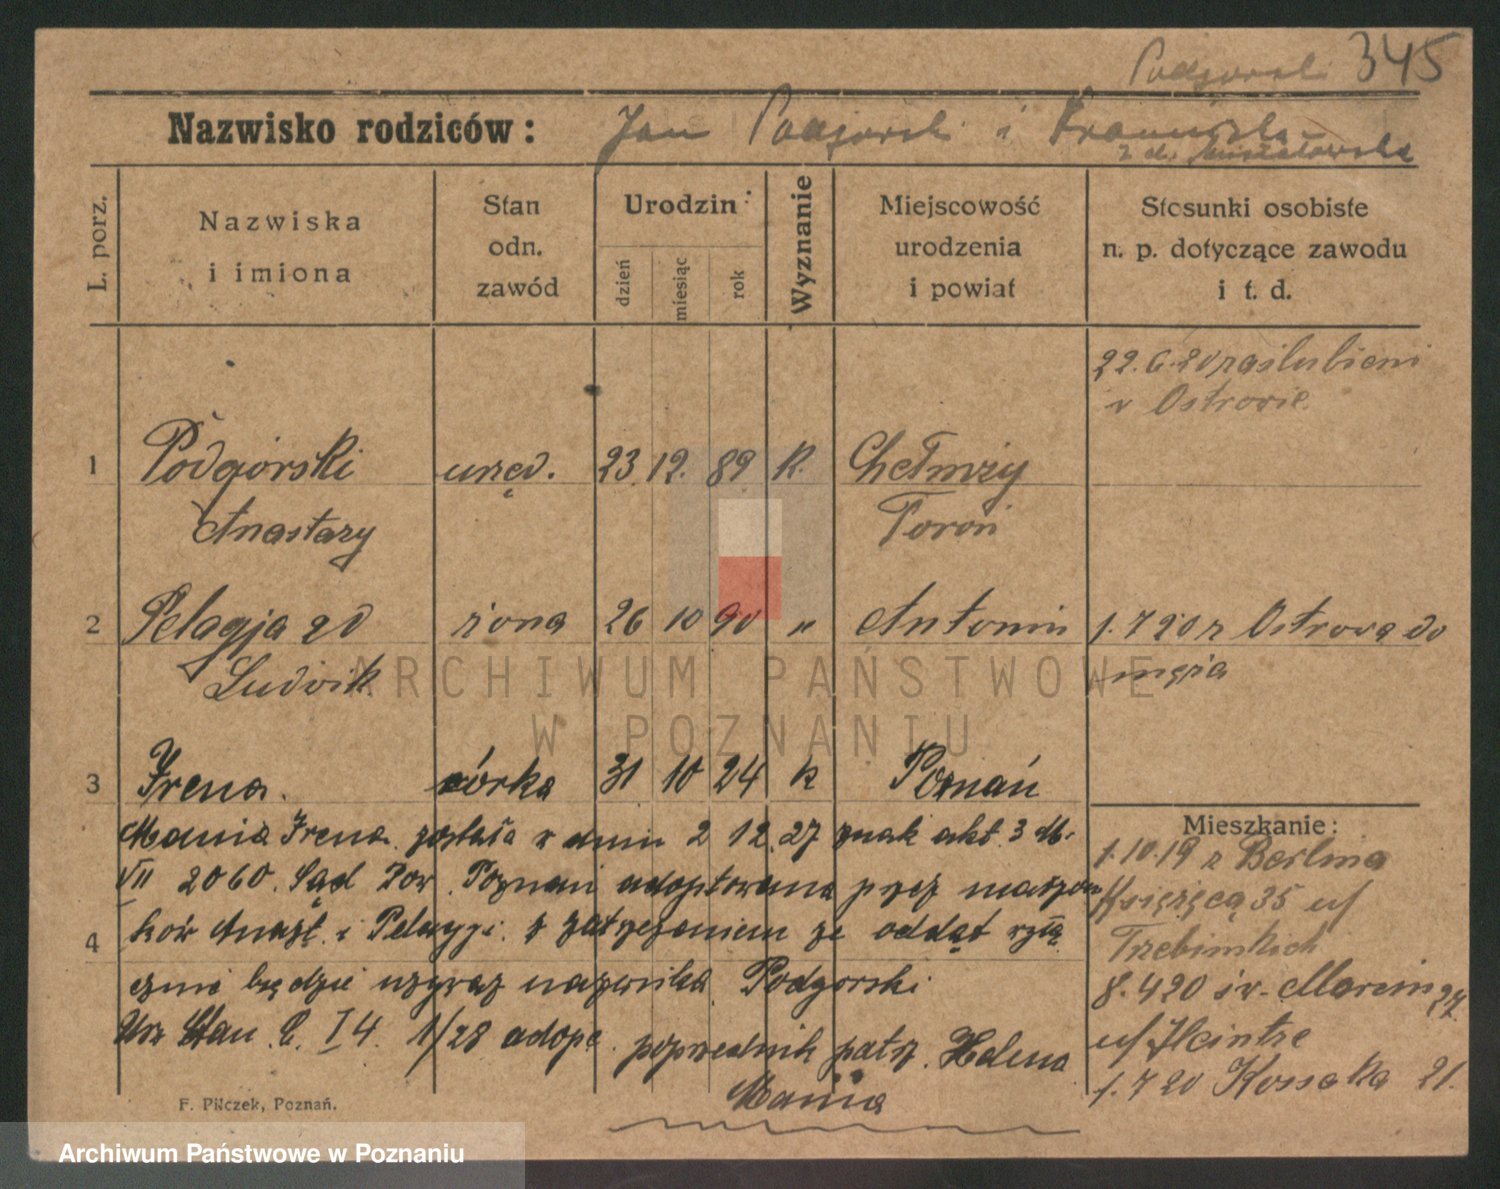 Podgorski 345
Nazwisko rodziców: Jan Podgorski i Franciszka
z d.
L. porz.
Nazwiska
i imiona
Stan
odn.
zawód
Urodzin
dzień
miesiąc
rok
Wyznanie
Miejscowość
urodzenia
i powiat
Stosunki osobiste
n. p. dotyczące zawodu
i t. d.
22.6.20 zaślubieni
w Ostrowie
1 Podgórski urzęd. 23. 12. 89 k. Chełmży
Anastazy Toroń
2 Pelagja zd żona 26 10 90 " Antonin 1.7 20 z Ostrowa do
Ludwik męża
ARCHIWUM PAŃSTWOWE
W POZNANIU
3 Irena. córka 31 10 24 k Poznań
Mania Irena została w dniu 2 12. 27 znak akt. 3 M.
VII 2060. Sąd Pow. Poznań adoptowana przez małżon
4 ków Anast. i Pelagji. z zastrzeżeniem że oddąt wyłą
cznie będzie używać nazwiska Podgorski
Urz Stan. C. I 4. 1/28 adopc. poprzednik patrz. Helena
Mania
Mieszkanie:
1.10.19 z Berlina
Księżęcą 35 u/
Trzebinskich
8.4 20 św. Marcin 27
u/ Heintze
1.7 20 Kossaka 21.
F. Pilczek, Poznań.
Archiwum Państwowe w Poznaniu